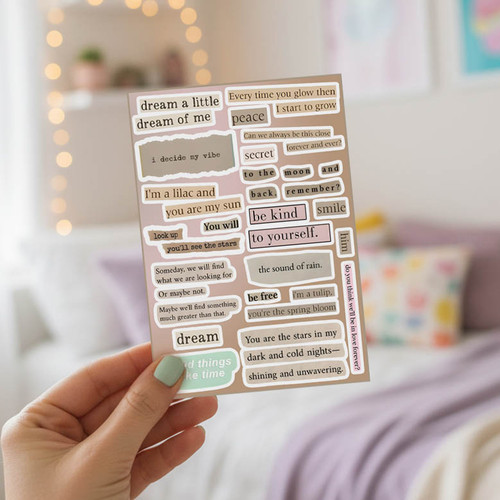 dream a little
dream of me
Every time you glow then
I start to grow
peace
Can we always be this close
forever and ever?
i decide my vibe
secret
to the moon and
back, remember?
I'm a lilac and
you are my sun
be kind
to yourself.
smile
You will
look up
you'll see the stars
Someday, we will find
what we are looking for
Or maybe not.
Maybe we'll find something
much greater than that.
the sound of rain.
be free
I'm a tulip,
you're the spring bloom
do you think we'll be in love forever?
dream
things
time
You are the stars in my
dark and cold nights—
shining and unwavering.